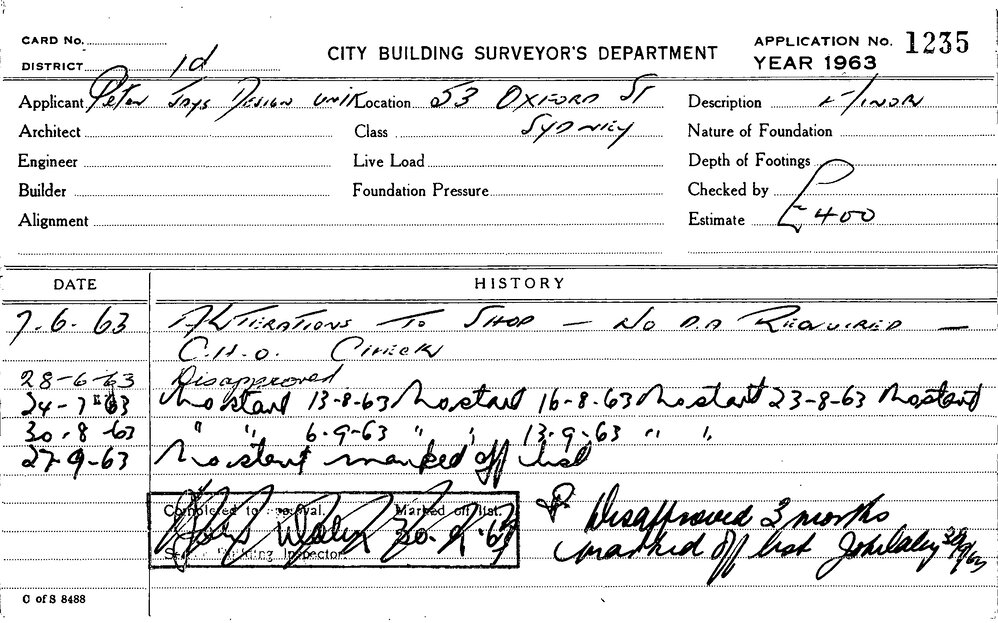 CARD No.
CITY BUILDING SURVEYOR'S DEPARTMENT
APPLICATION No. 1235
DISTRICT 1d
YEAR 1963
Applicant Peter Jays Design Unit Location 53 Oxford St Description Minor
Architect Class Sydney Nature of Foundation
Engineer Live Load Depth of Footings
Builder Foundation Pressure Checked by
Alignment Estimate £400
DATE HISTORY
7-6-63 Alterations to Shop — No D.A Required —
C.H.O. Check
28-6-63 Disapproved
24-7-63 No start 13-8-63 No start 16-8-63 No start 23-8-63 No start
30-8-63 " " 6-9-63 " " 13-9-63 " "
27-9-63 No start marked off list
Completed to approval. Marked off list.
Building Inspector.
Disapproved 3 months
marked off list
C of S 8488